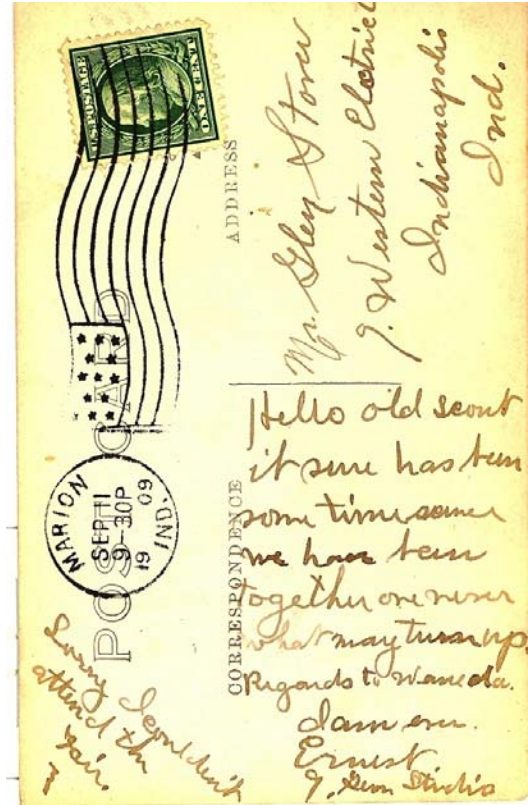 POST CARD
MARION
SEP 11
9-30P
19 09
IND.
CORRESPONDENCE
ADDRESS
Mr. Glen Stover
Western Electric
Indianapolis
Ind.
Hello old scout
it sure has been
some time
we have been
together one never
what may turn up.
Regards to
I am ever.
Ernest
Studio
Sorry I couldn't
attend the
Fair.